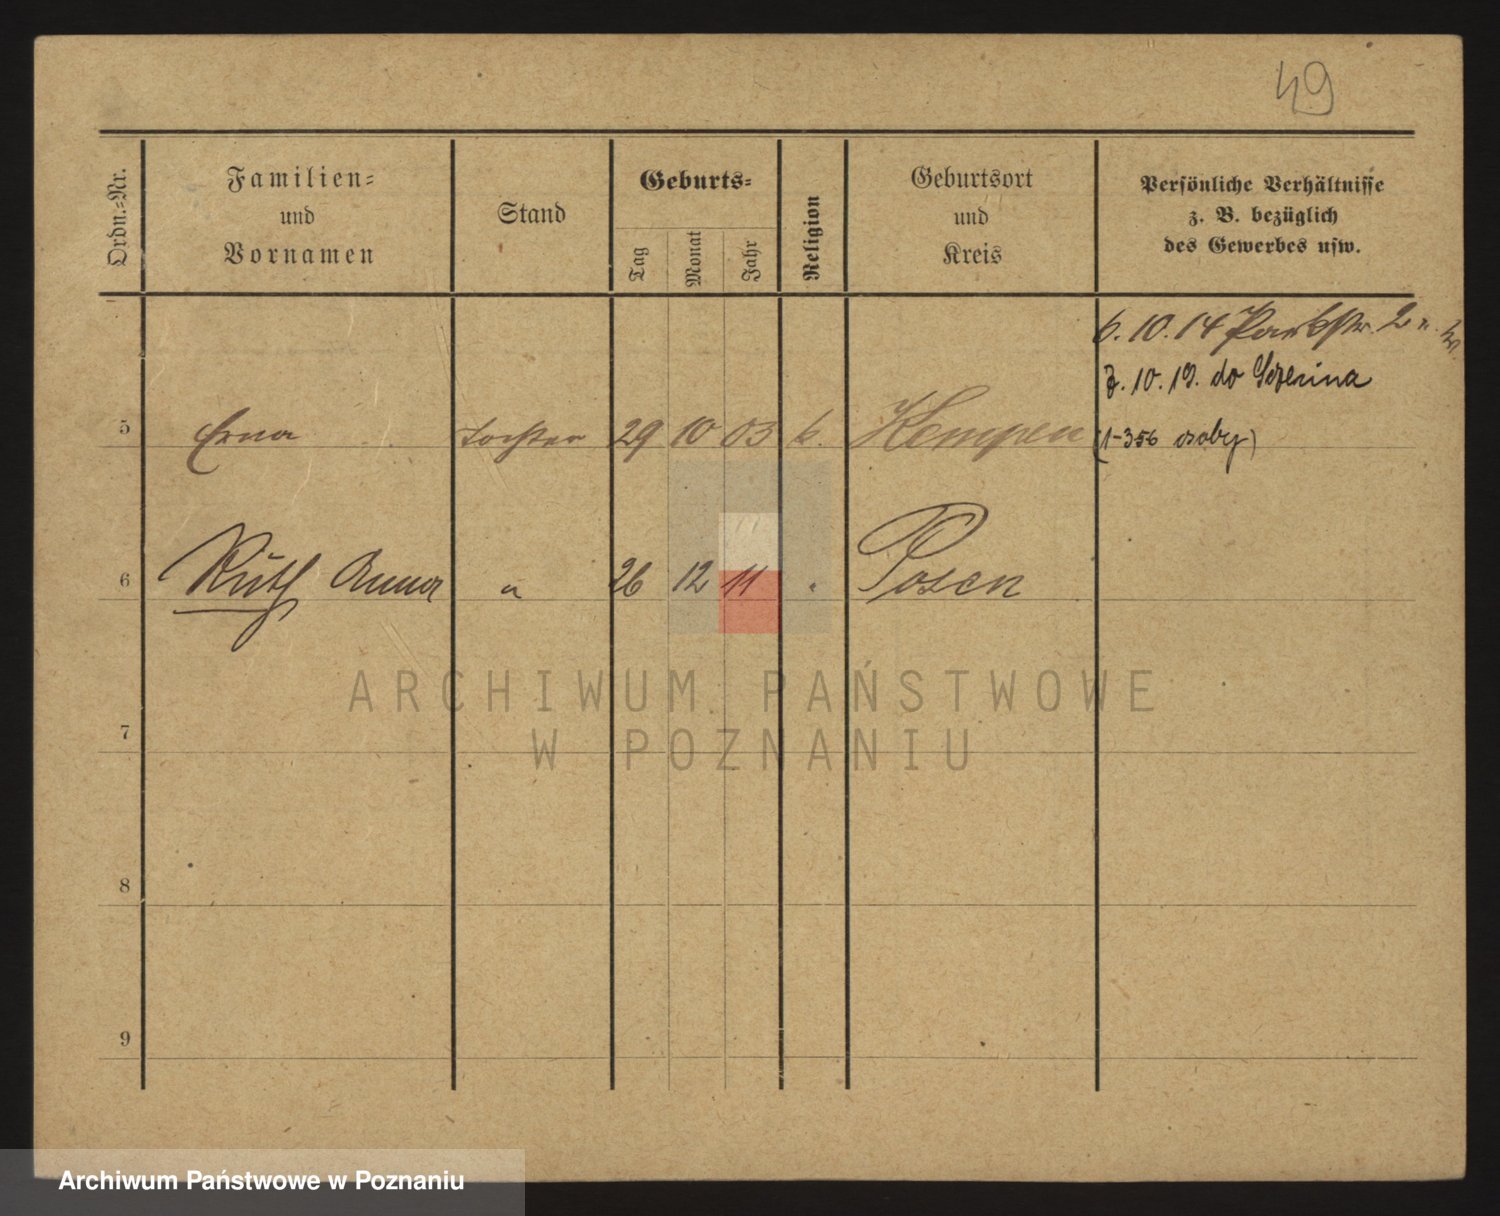 49
Ordn.-Nr.
Familien-
und
Vornamen
Stand
Geburts-
Tag
Monat
Jahr
Religion
Geburtsort
und
Kreis
Persönliche Verhältnisse
z. B. bezüglich
des Gewerbes usw.
6. 10. 14 Parkstr. 2
10. 19. do
5 Erna Tochter 29 10 03 k. Kempen
osoby)
6 Ruth Anna " 26 12 11 " Posen
7
8
9
ARCHIWUM PAŃSTWOWE
W POZNANIU
Archiwum Państwowe w Poznaniu